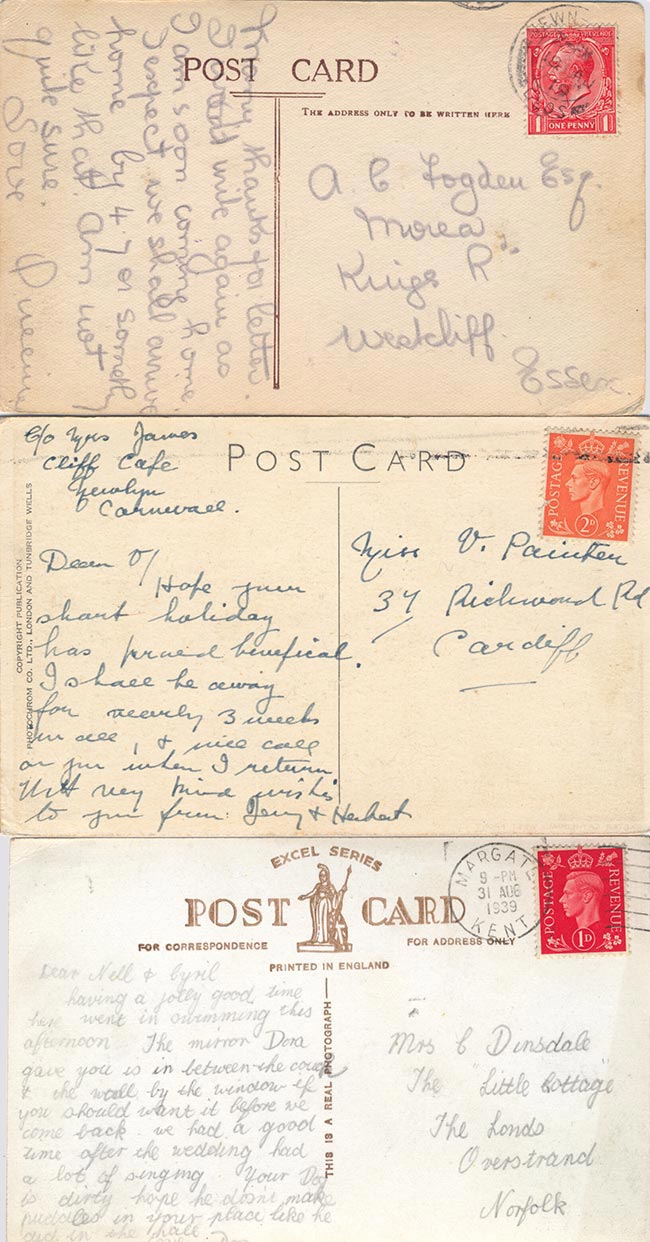 POST CARD
THE ADDRESS ONLY TO BE WRITTEN HERE
POSTAGE REVENUE
ONE PENNY
1 1
Many thanks for letter.
I wont write again as
I am soon coming home.
I expect we shall arrive
home by 4.7 or somethg
like that. Am not
quite sure.
Love
A. C. Fogden Esq.
Morea
Kings Rd
Westcliff.
Essex.
POST CARD
COPYRIGHT PUBLICATION
PHOTOCHROM CO. LTD., LONDON AND TUNBRIDGE WELLS
POSTAGE REVENUE
2D
c/o Mrs James
Cliff Cafe
Newlyn
Cornwall.
Dear V/
Hope your
short holiday
has proved benefical.
I shall be away
for nearly 3 weeks
in all, & will call
on you when I return
With very kind wishes
to you from & Herbert
Miss V. Painter
37 Richmond Rd
Cardiff
EXCEL SERIES
POST CARD
FOR CORRESPONDENCE
FOR ADDRESS ONLY
PRINTED IN ENGLAND
THIS IS A REAL PHOTOGRAPH
MARGATE
9 - PM
31 AUG
1939
KENT
POSTAGE REVENUE
1D
Dear Nell & Cyril
having a jolly good time
here went in swimming this
afternoon The mirror Dora
gave you is in between the couch
& the wall by the window if
you should want it before we
come back we had a good
time after the wedding had
a lot of singing Your Dog
is dirty hope he doesnt make
puddles in your place like he
did in the hall
Mrs C Dinsdale
The "Little Cottage"
The Londs
Overstrand
Norfolk